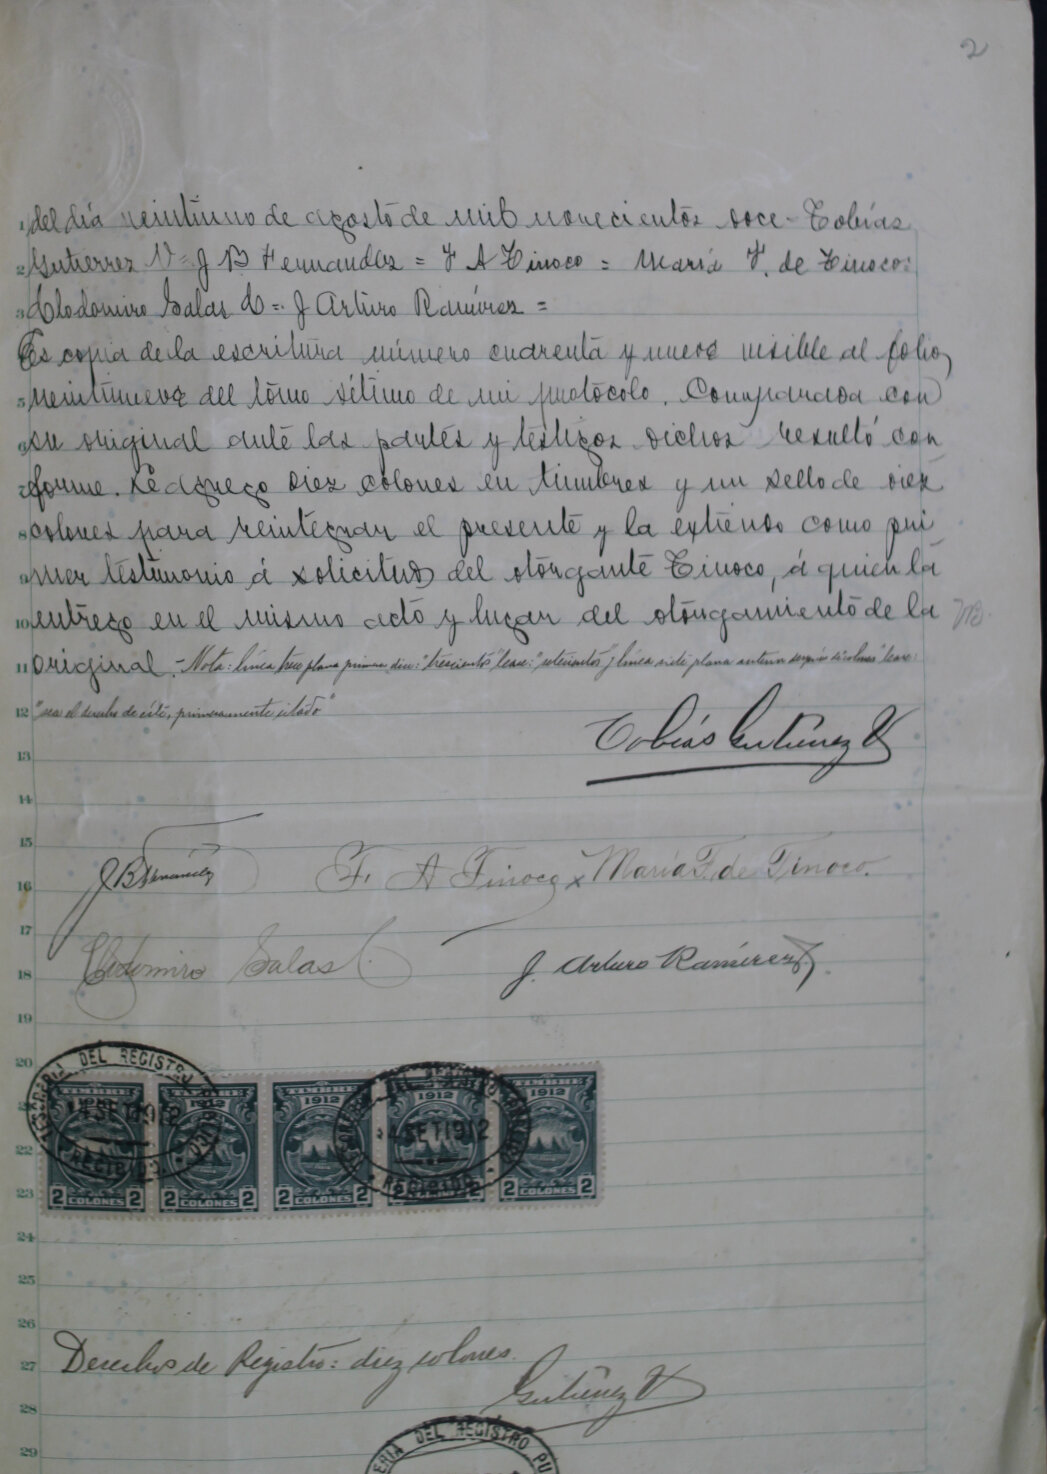 2
1 del día veintiuno de agosto de mil novecientos doce - Tobías
2 Gutierrez V = J B Fernandez = F A Tinoco = María F. de Tinoco =
3 Clodomiro Salas C = J Arturo Ramírez =
4 Es copia de la escritura número cuarenta y nueve visible al folio
5 veintinueve del tomo sétimo de mi protócolo. Comparada con
6 su original ante las partes y testigos dichos resultó con
7 forme. Le agrego diez colones en timbres y un sello de diez
8 colones para reintegrar el presente y la extiendo como pri
9 mer testimonio á solicitud del otorgante Tinoco, á quien la
10 entrego en el mismo acto y lugar del otorgamiento de la
11 original. - Nota: línea trece plana primera dice: "trescientos" lease: y línea siete plana anterior después de lease:
12 "sea el derecho de éste, primeramente citado"
Tobías Gutiérrez V
13
14
15
J B Fernández F. A Tinoco x María F. de Tinoco.
16
17
Clodomiro Salas C. J. Arturo Ramírez
18
19
20
TESORERIA DEL REGISTRO PUBLICO
TIMBRE TIMBRE
1912 1912 1912
4 SET 1912 4 SET 1912
RECIBIDO. RECIBIDO
22
2 COLONES 2 2 COLONES 2 2 COLONES 2 2 2 2 COLONES 2
23
24
25
26
27 Derechos de Registro: diez colones.
Gutiérrez V
28
ERIA DEL REGISTRO PU
29